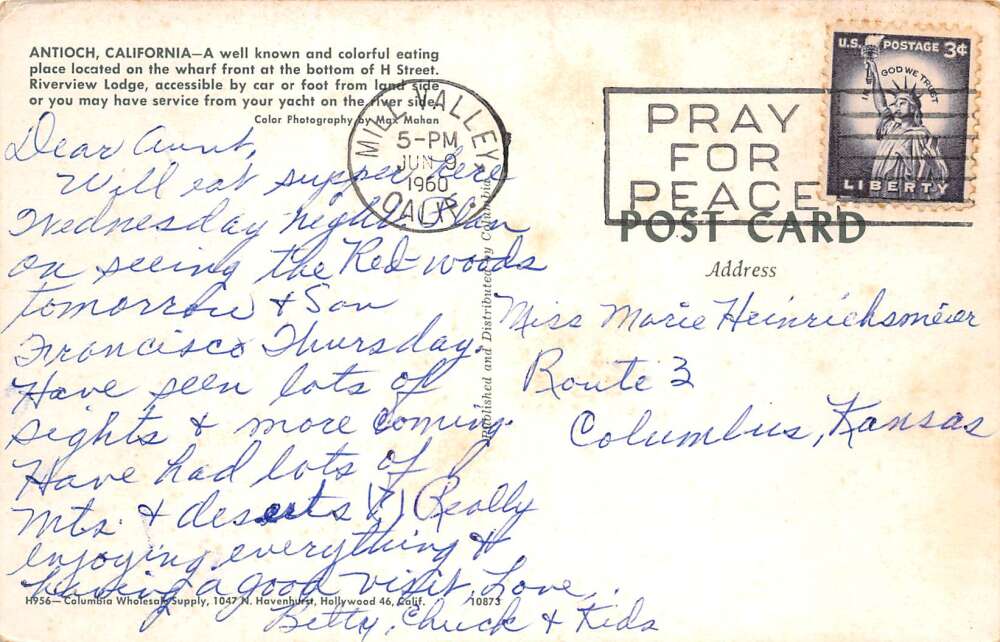 ANTIOCH, CALIFORNIA—A well known and colorful eating
place located on the wharf front at the bottom of H Street.
Riverview Lodge, accessible by car or foot from land side
or you may have service from your yacht on the river side.
Color Photography by Max Mahan
Dear Aunt,
Will eat supper here
Wednesday night. Plan
on seeing the Red-woods
tomorrow & San
Francisco Thursday.
Have seen lots of
sights & more coming.
Have had lots of
Mts. & deserts (?) Really
enjoying everything &
having a good visit. Love,
Betty, Chuck & Kids
H956—Columbia Wholesale Supply, 1047 N. Havenhurst, Hollywood 46, Calif. 10873
Published and Distributed by Columbia
MILL VALLEY
5-PM
JUN 9
1960
CALIF.
PRAY
FOR
PEACE
U.S. POSTAGE 3¢
IN GOD WE TRUST
LIBERTY
POST CARD
Address
Miss Marie Heinrichsmeier
Route 3
Columbus, Kansas